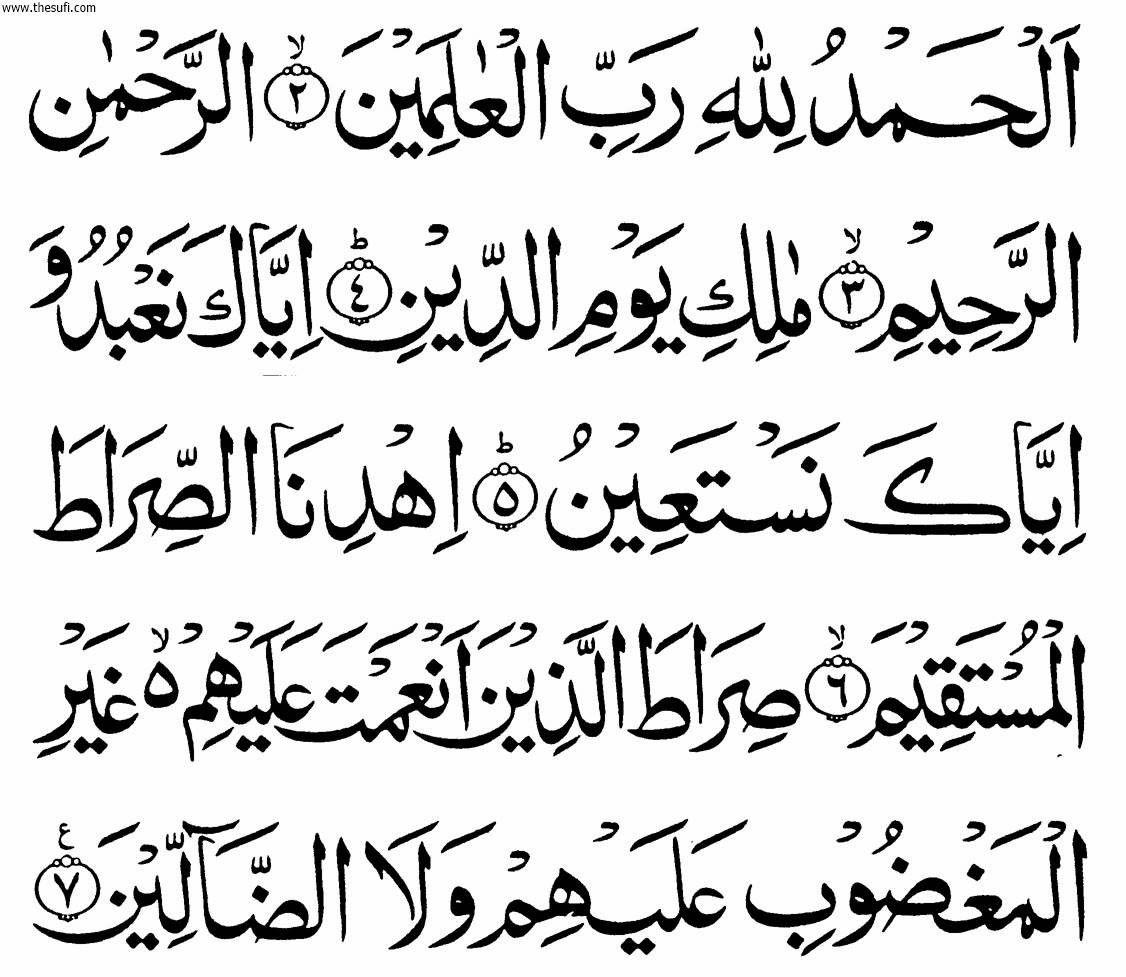 www.thesufi.com
اَلْحَمْدُ لِلّٰهِ رَبِّ الْعٰلَمِيْنَ ۙ﴿٢﴾ الرَّحْمٰنِ
الرَّحِيْمِ ۙ﴿٣﴾ مٰلِكِ يَوْمِ الدِّيْنِ ؕ﴿٤﴾ اِيَّاكَ نَعْبُدُ وَ
اِيَّاكَ نَسْتَعِيْنُ ؕ﴿٥﴾ اِهْدِنَا الصِّرَاطَ
الْمُسْتَقِيْمَ ۙ﴿٦﴾ صِرَاطَ الَّذِيْنَ اَنْعَمْتَ عَلَيْهِمْ ۙ۵ غَيْرِ
الْمَغْضُوْبِ عَلَيْهِمْ وَلَا الضَّآلِّيْنَ ﴿٧﴾ ع